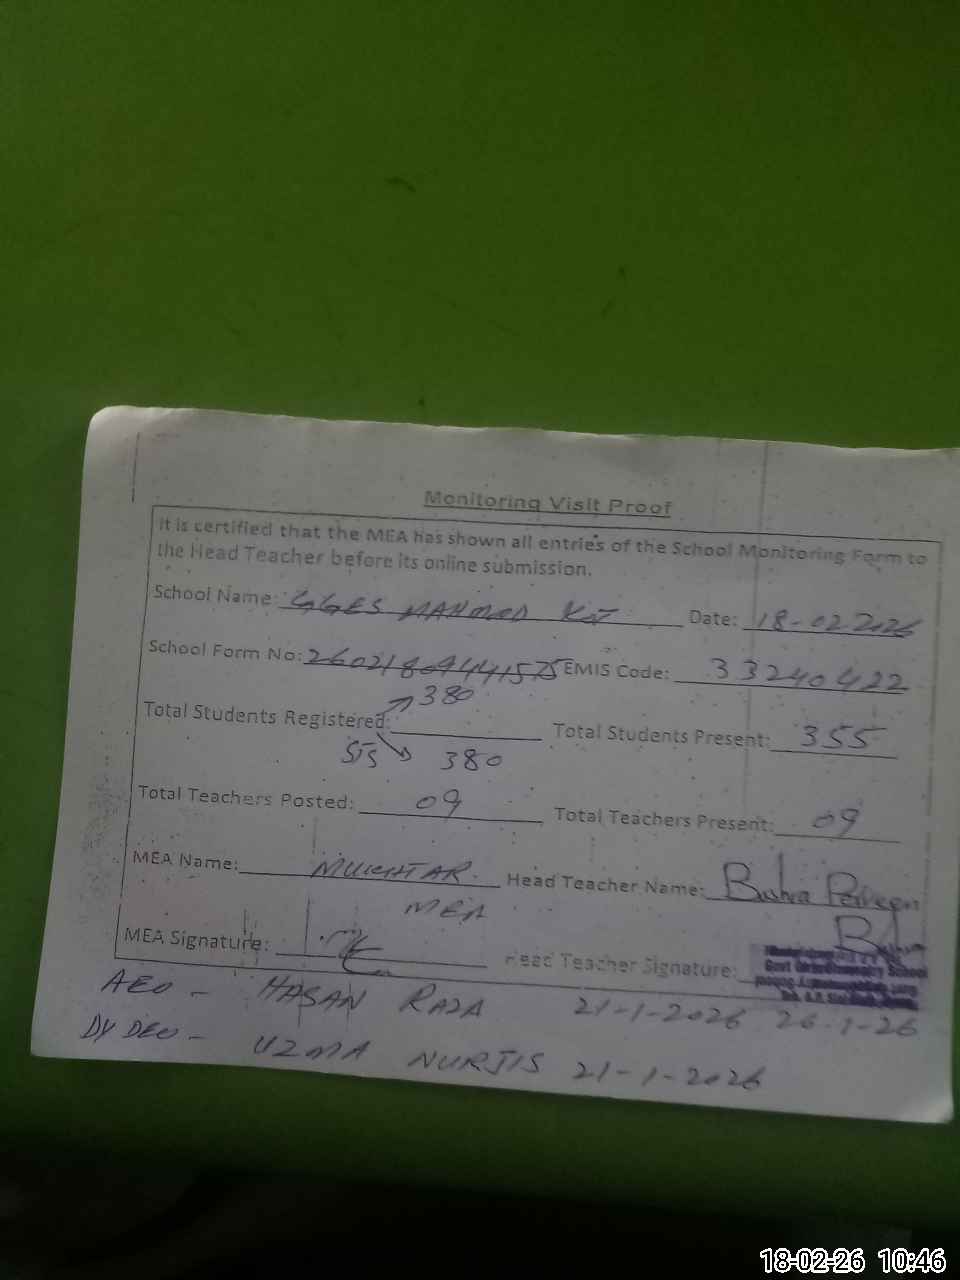 Monitoring Visit Proof
It is certified that the MEA has shown all entries of the School Monitoring Form to
the Head Teacher before its online submission.
School Name: GGES MAHMOD KOT Date: 18-02-2026
School Form No: 260218094441575 EMIS Code: 33240422
Total Students Registered: 380 Total Students Present: 355
STS 380
Total Teachers Posted: 09 Total Teachers Present: 09
MEA Name: MUKHTAR Head Teacher Name: Bushra Perveen
MEA
MEA Signature: Head Teacher Signature:
Govt School
AEO - HASAN RAZA 21-1-2026 26-1-26
DY DEO - UZMA NURJIS 21-1-2026
18-02-26 10:46